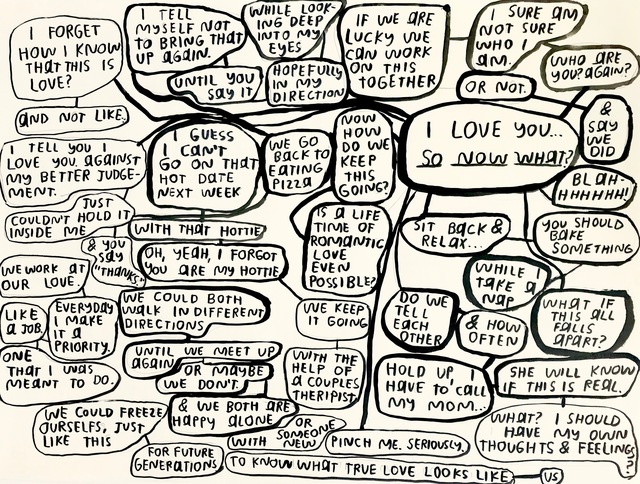 I FORGET
HOW I KNOW
THAT THIS IS
LOVE?
AND NOT LIKE.
I TELL
MYSELF NOT
TO BRING THAT
UP AGAIN.
UNTIL YOU
SAY IT
WHILE LOOK-
ING DEEP
INTO MY
EYES
HOPEFULLY
IN MY
DIRECTION
IF WE ARE
LUCKY WE
CAN WORK
ON THIS
TOGETHER
I SURE AM
NOT SURE
WHO I
AM.
OR NOT.
WHO ARE
YOU? AGAIN?
I LOVE YOU...
SO NOW WHAT?
&
SAY
WE
DID
BLAH-
HHHHHH!
TELL YOU I
LOVE YOU. AGAINST
MY BETTER JUDGE-
MENT.
I GUESS
I CAN'T
GO ON THAT
HOT DATE
NEXT WEEK
WE GO
BACK TO
EATING
PIZZA
NOW
HOW
DO WE
KEEP
THIS
GOING?
JUST
COULDN'T HOLD IT
INSIDE ME
WITH THAT HOTTIE
& YOU
SAY
"THANKS."
OH, YEAH, I FORGOT
YOU ARE MY HOTTIE
IS A LIFE
TIME OF
ROMANTIC
LOVE
EVEN
POSSIBLE?
SIT BACK &
RELAX...
YOU SHOULD
BAKE
SOMETHING
WHILE I
TAKE A
NAP
WE WORK AT
OUR LOVE.
LIKE
A JOB.
EVERYDAY
I MAKE
IT A
PRIORITY.
ONE
THAT I WAS
MEANT TO DO.
WE COULD BOTH
WALK IN DIFFERENT
DIRECTIONS
WE KEEP
IT GOING
DO WE
TELL
EACH
OTHER
& HOW
OFTEN
WHAT IF
THIS ALL
FALLS
APART?
UNTIL WE MEET UP
AGAIN
OR MAYBE
WE DON'T.
WITH THE
HELP OF
A COUPLES
THERIPIST
HOLD UP, I
HAVE TO CALL
MY MOM...
SHE WILL KNOW
IF THIS IS REAL.
WE COULD FREEZE
OURSELFS, JUST
LIKE THIS
& WE BOTH ARE
HAPPY ALONE
OR
WITH SOMEONE
NEW
PINCH ME. SERIOUSLY.
WHAT? I SHOULD
HAVE MY OWN
THOUGHTS & FEELINGS
?
FOR FUTURE
GENERATIONS.
TO KNOW WHAT TRUE LOVE LOOKS LIKE
US